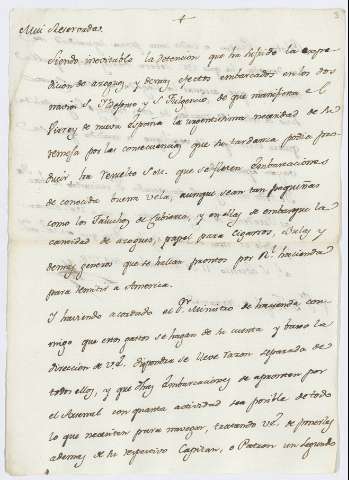 +
Mui Reservada.
Siendo inevitable la detencion que ha sufrido la expe
dicion de azogues y demas efectos embarcados en los dos
navios S. Ildefonso y S. Fulgencio, de que manifiesta el
Virrey de nueva España la urgentisima necesidad de su
remesa por las consecuencias que su tardanza podia pro
ducir ha resuelto S.M. que se fleten Embarcaciones
de conocida buena vela, aunque sean tan pequeñas
como los Faluchos de y en ellas se embarque la
cantidad de azogues, papel para cigarros, Bulas y
demas generos que se hallan promtos por Rl. hacienda
para remitir a America.
Y haviendo acordado el Sr. Ministro de hacienda con
migo que estos gastos se hagan de su cuenta y bajo la
direccion de V.E. dispondra se lleve razon separada de
todos ellos, y que dhas Embarcaciones se apronten por
el Arsenal con quanta actividad sea posible de todo
lo que necesiten para navegar, tratando V.E. de ponerlas
ademas de su respectivo Capitan, o Patron un segundo